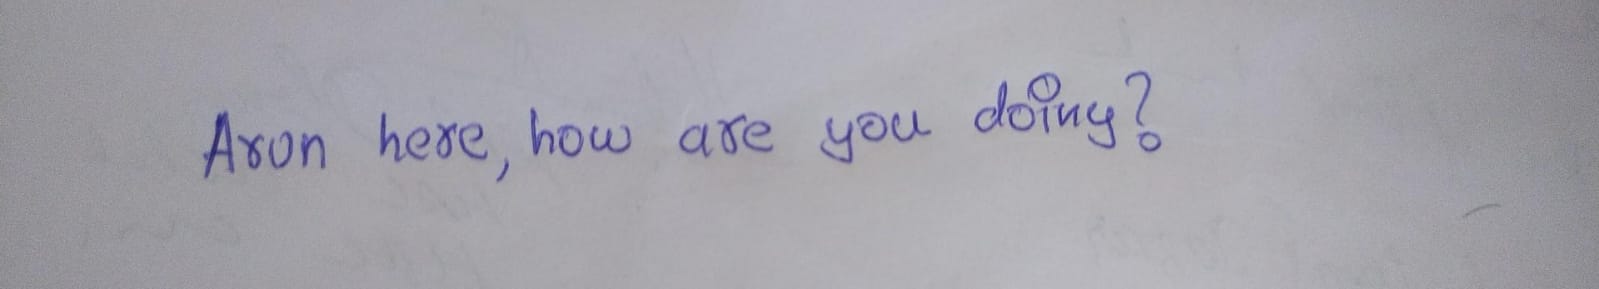 Aron here, how are you doing?